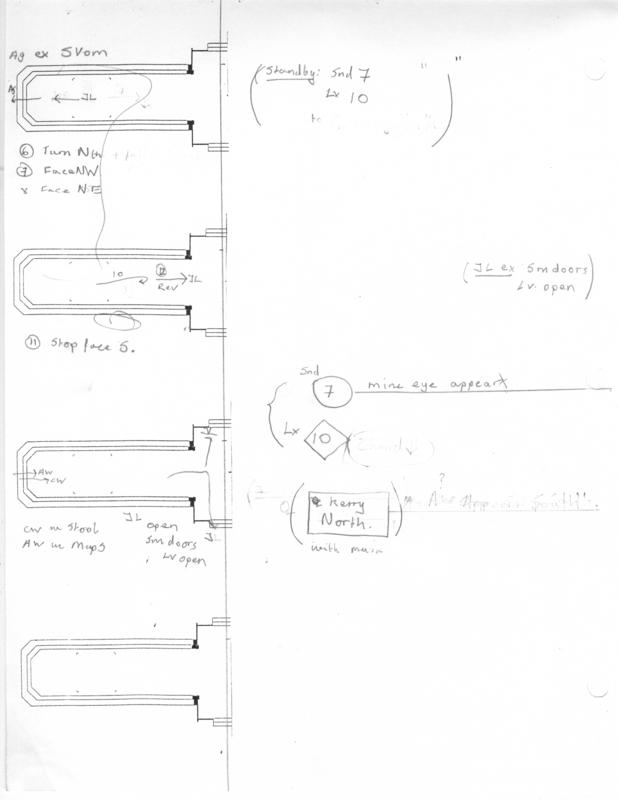 Ag ex SVom
Ag
JL
(Standby: Snd 7 " "
Lx 10
to
⑥ Turn Nth
⑦ Face NW
x Face NE
10 Rev JL
(JL ex Sm doors
Lv. open)
⑪ Stop face S.
Snd
7 mine eye appear
Lx 10
AW
CW
?
Q (Kerry
North.)
South".
with music
JL
CW w Stool
AW w Maps
JL open
Sm doors
Lv open